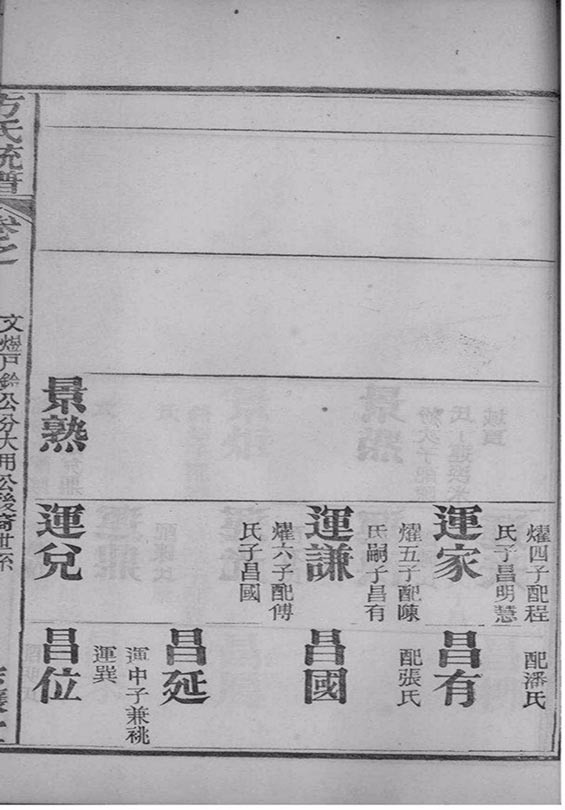 景熟
燿四子配程
氏子昌明慧
運家
燿五子配陳
氏嗣子昌有
運謙
燿六子配傅
氏子昌國
運兌
配潘氏
昌有
配張氏
昌國
昌延
運中子兼祧
運巽
昌位
方氏統譜
卷之
公分大用公後裔世系